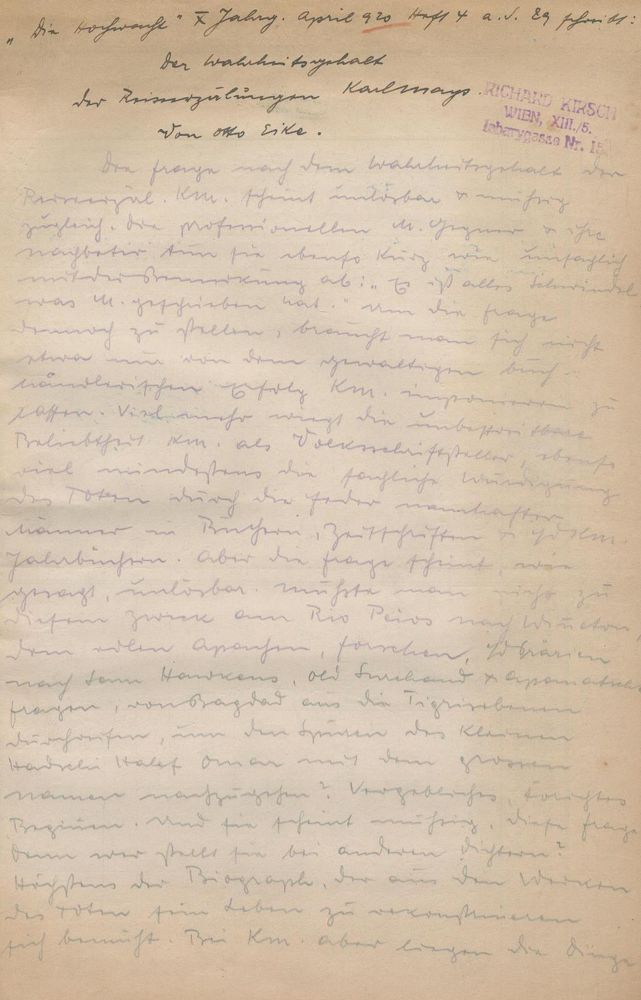 „Die Hochwacht" X Jahrg. April 920 Heft 4 a. S. 89 schreibt:
Der Wahrheitsgehalt
der Reiseerzälungen Karl Mays.
Von Otto Eike.
RICHARD KIRSCH
WIEN, XIII./5.
Nr. 15
Die Frage nach dem Wahrheitsgehalt der
Reiseerzäl. Km. scheint unlösbar & müßig
zugleich. Die professionellen M. Gegner & ihre
Nachbeter tun sie ebenso kurz wie unsachlich
mit der Bemerkung ab: „Es ist alles Schwindel
was M. geschrieben hat." Um die Frage
dennoch zu stellen, braucht man sich nicht
etwa nur von dem gewaltigen buch-
händlerischen Erfolg Km. imponieren zu
lassen. Viel mehr wiegt die unbestreitbare
Beliebtheit Km. als Volksschriftsteller, ebenso
viel mindestens die sachliche Würdigung
des Toten durch die Feder namhafter
Männer in Büchern, Zeitschriften & Km.
Jahrbüchern. Aber die Frage scheint, wie
gesagt, unlösbar. Müßte man nicht zu
diesem Zweck am Rio Pecos nach Winnetou
dem edlen Apachen, forschen, Prärien
nach Sam Hawkens, Old Surehand &
fragen, von Bagdad aus die Tigrisebenen
durchreifen, um den Spuren des kleinen
Hadschi Halef Omar mit dem grossen
Namen nachzugehen? Vergebliches, törichtes
Beginnen. Und sie scheint müßig, diese Frage
Denn wer stellt sie bei anderen Dichtern?
Höchstens der Biograph, der aus den Werken
des Toten sein Leben zu rekonstruieren
sich bemüht. Bei Km. aber liegen die Dinge